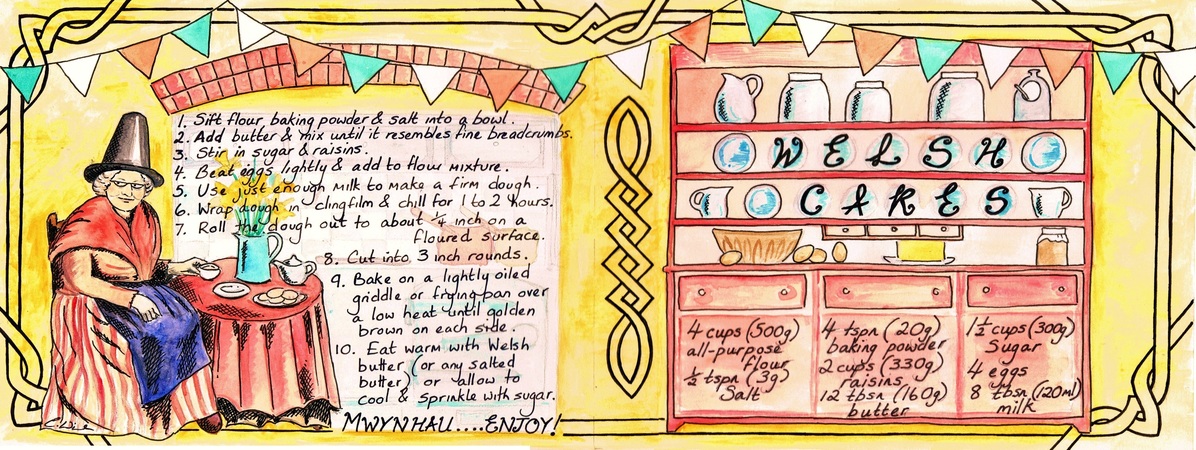 1. Sift flour, baking powder & salt into a bowl.
2. Add butter & mix until it resembles fine breadcrumbs.
3. Stir in sugar & raisins.
4. Beat eggs lightly & add to flour mixture.
5. Use just enough milk to make a firm dough.
6. Wrap dough in clingfilm & chill for 1 to 2 hours.
7. Roll the dough out to about 1/4 inch on a
floured surface.
8. Cut into 3 inch rounds.
9. Bake on a lightly oiled
griddle or frying-pan over
a low heat until golden
brown on each side.
10. Eat warm with Welsh
butter (or any salted
butter) or allow to
cool & sprinkle with sugar.
MWYNHAU....ENJOY!
WELSH
CAKES
4 cups (500g)
all-purpose
flour
1/2 tspn (3g)
Salt
4 tspn (20g)
baking powder
2 cups (330g)
raisins
12 tbsn (160g)
butter
1 1/2 cups (300g)
Sugar
4 eggs
8 tbsn (120ml)
milk